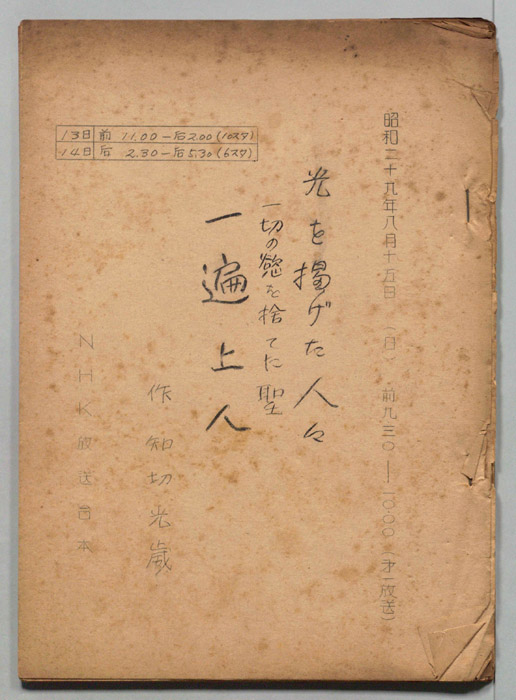 昭和二十九年八月十五日 (日) 前九三〇—一〇〇〇 (才一放送)
光を掲げた人々
一切の慾を捨てた聖
一遍上人
作 知切光歳
NHK放送台本
13日 前 11.00-后2.00(10スタ)
14日 后 2.30-后5.30(6スタ)